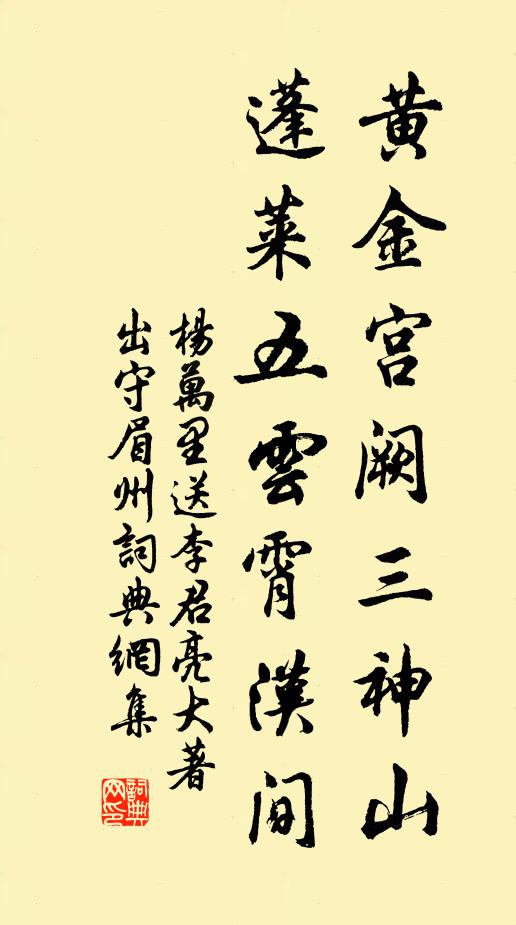 黄金宫阙三神山
蓬莱五雲霄漢间
楊萬里送李君亮大著
出守眉州詞典網集
詞典网印